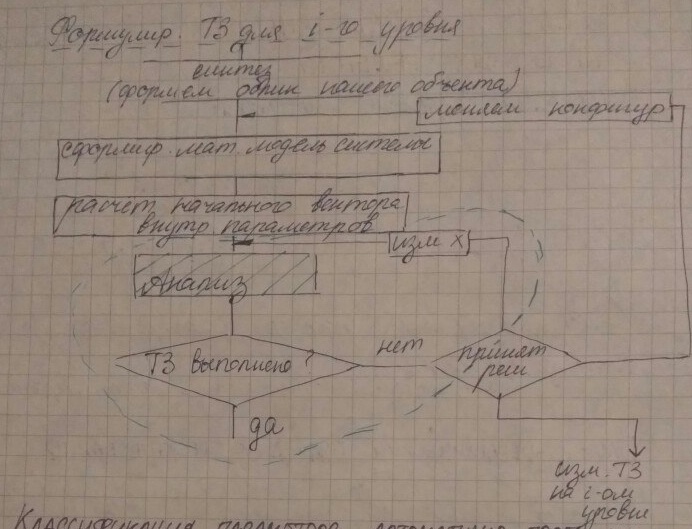 Формулир. ТЗ для i-го уровня
синтез
(формем облик нашего объента)
меняем конфигур
сформиф. мат. модель системы
расчет начального вектора
внутр параметров
изм X
Анализ
ТЗ выполнено?
нет
принят
реш
да
изм. ТЗ
на i-ом
уровне
Классификация